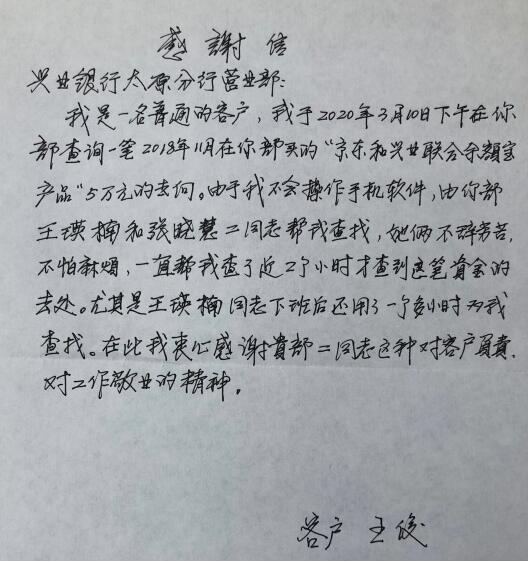 感謝信
兴业银行太原分行营业部:
我是一名普通的客户,我于2020年3月10日下午在你
部查询一笔2018年11月在你部买的“京东和兴业联合余额宝
产品”5万元的去向。由于我不会操作手机软件,由你部
王瑛楠和张晓慧二同志帮我查找,她俩不辞劳苦,
不怕麻烦,一直帮我查了近2个小时才查到这笔资金的
去处。尤其是王瑛楠同志下班后还用了一个多小时为我
查找。在此我衷心感谢貴部二同志这种对客户負責、
对工作敬业的精神。
客户 王俊